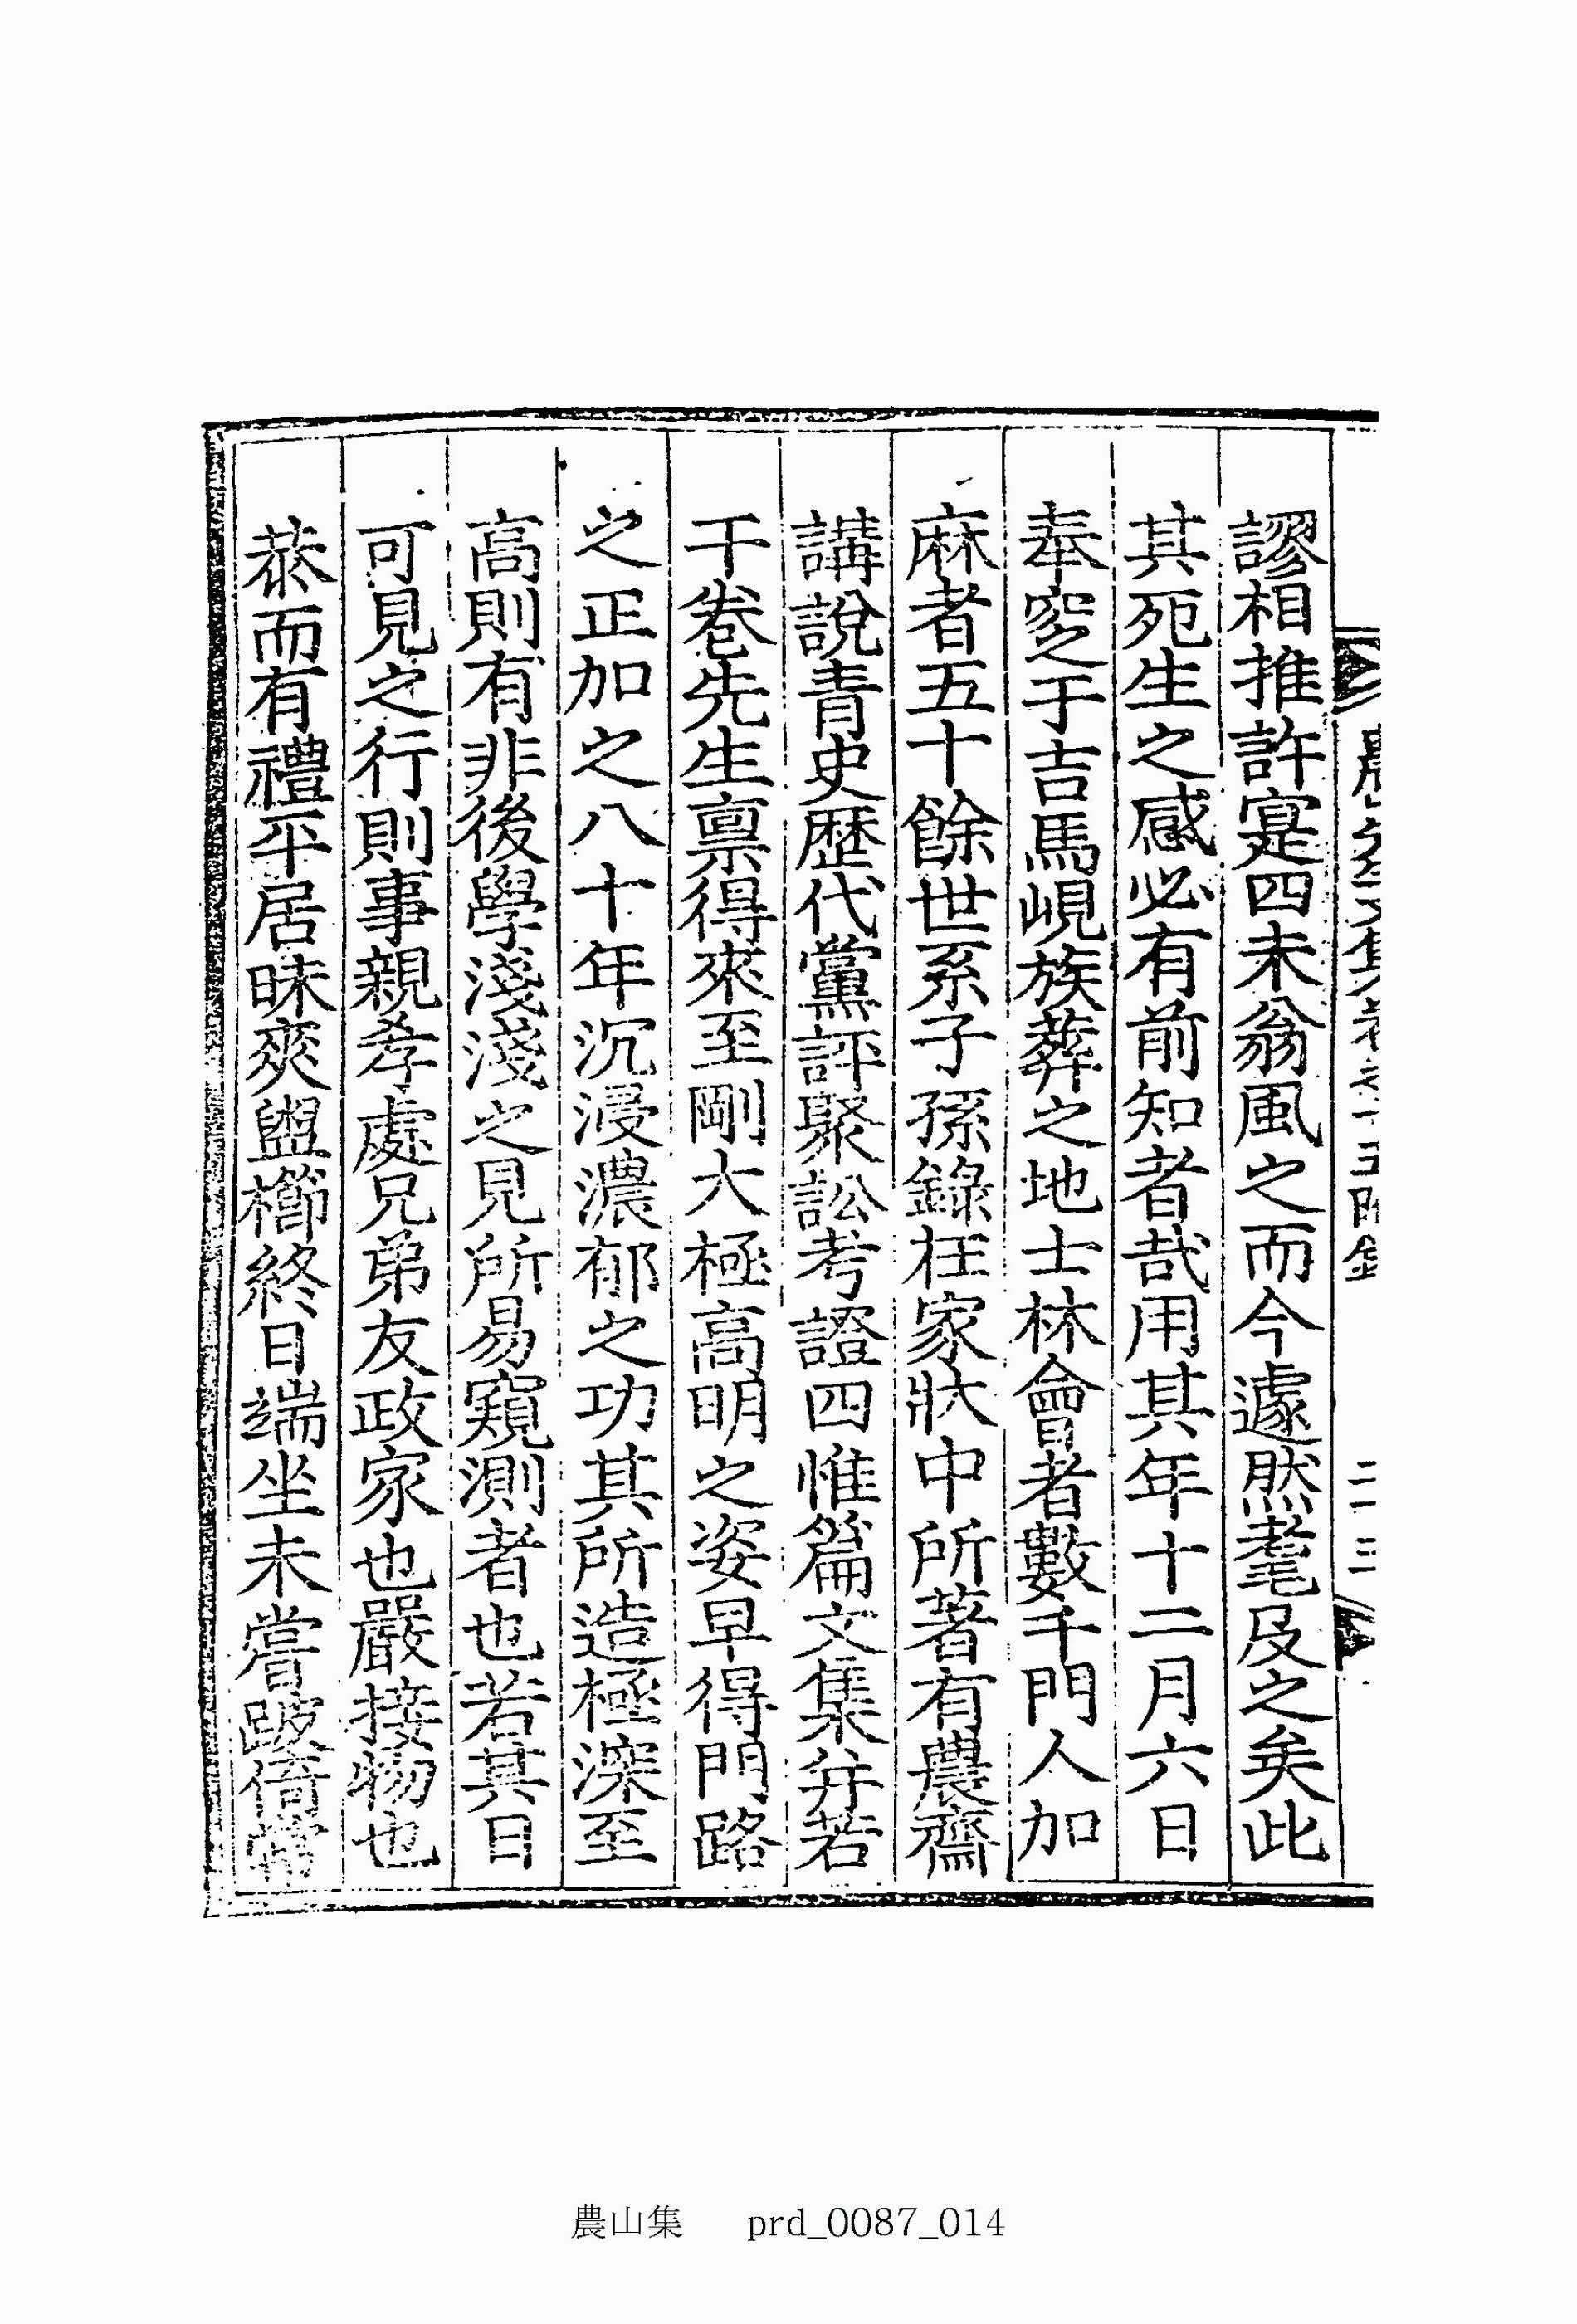 謬相推許寔四未翁風之而今遽然耄及之矣此
其死生之感必有前知者哉用其年十二月六日
奉窆于吉馬峴族葬之地士林會者數千門人加
麻者五十餘世系子孫錄在家狀中所著有農齋
講說青史歷代黨評聚訟考證四惟篇文集并若
干卷先生禀得來至剛大極高明之姿早得門路
之正加之八十年沉浸濃郁之功其所造極深至
高則有非後學淺淺之見所易窺測者也若其日
可見之行則事親孝處兄弟友政家也嚴接物也
恭而有禮平居昧爽盥櫛終日端坐未嘗跛倚
農山集 prd_0087_014